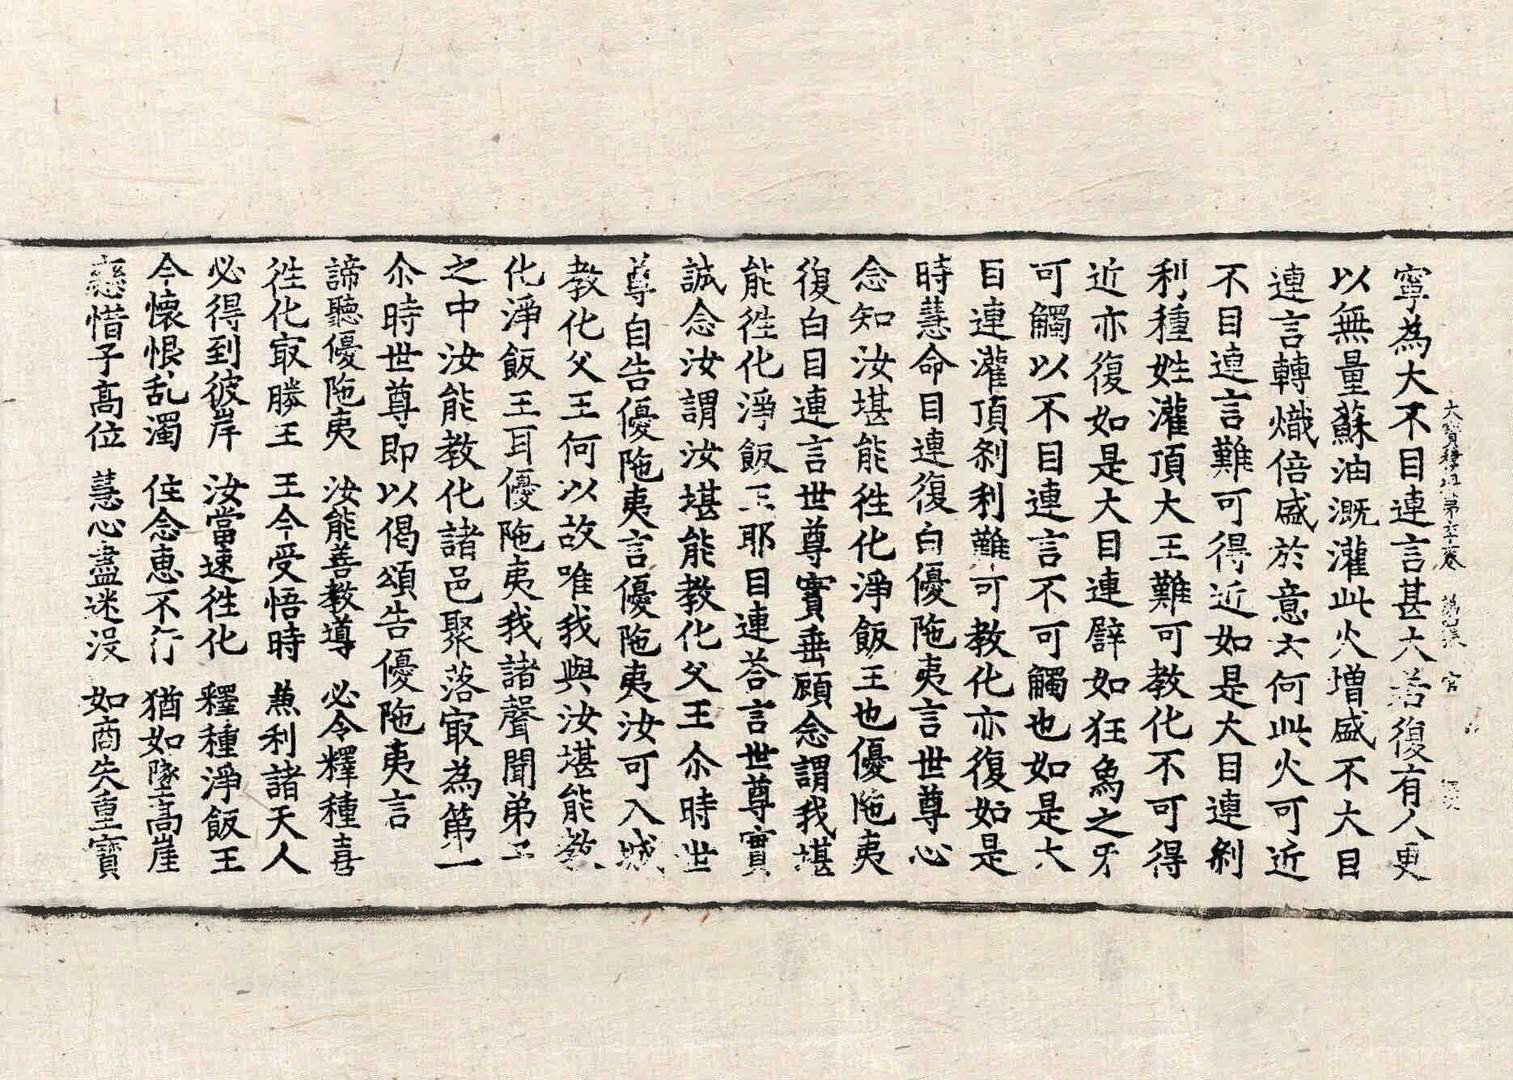 大寶積經第六十一卷 第 張 官
寧為大不目連言甚大若復有人更
以無量蘇油溉灌此火增盛不大目
連言轉熾倍盛於意云何此火可近
不目連言難可得近如是大目連刹
利種姓灌頂大王難可教化不可得
近亦復如是大目連譬如狂象之牙
可觸以不目連言不可觸也如是大
目連灌頂刹利難可教化亦復如是
時慧命目連復白優陁夷言世尊心
念知汝堪能徃化淨飯王也優陁夷
復白目連言世尊實垂顧念謂我堪
能徃化淨飯王耶目連荅言世尊實
誠念汝謂汝堪能教化父王尒時世
尊自告優陁夷言優陁夷汝可入城
教化父王何以故唯我與汝堪能教
化淨飯王耳優陁夷我諸聲聞弟子
之中汝能教化諸邑聚落㝡為第一
尒時世尊即以偈頌告優陁夷言
諦聽優陁夷 汝能善教導 必令釋種喜
徃化㝡勝王 王今受悟時 兼利諸天人
必得到彼岸 汝當速徃化 釋種淨飯王
今懷恨乱濁 住念惠不行 猶如墜高崖
戀惜子高位 慧心盡迷没 如商失重寶